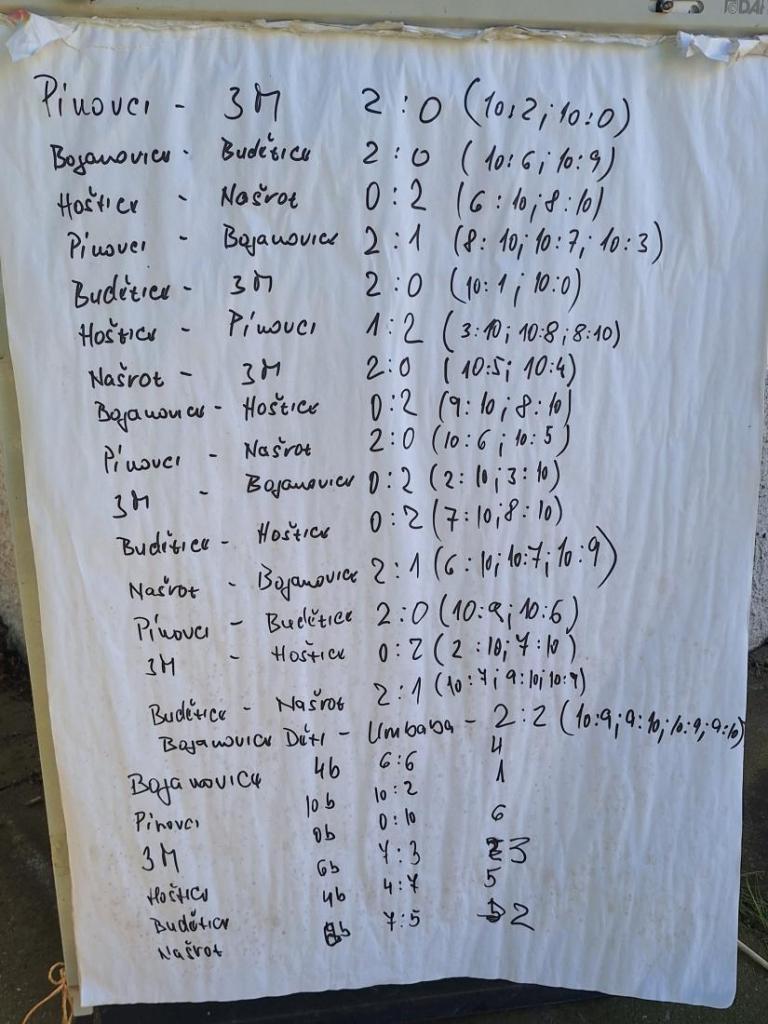 Pínovci - 3M 2:0 (10:2; 10:0)
Bojanovice - Budětice 2:0 (10:6; 10:9)
Hoštice - Našrot 0:2 (6:10; 8:10)
Pínovci - Bojanovice 2:1 (8:10; 10:7; 10:3)
Budětice - 3M 2:0 (10:1; 10:0)
Hoštice - Pínovci 1:2 (3:10; 10:8; 8:10)
Našrot - 3M 2:0 (10:5; 10:4)
Bojanovice - Hoštice 0:2 (9:10; 8:10)
Pínovci - Našrot 2:0 (10:6; 10:5)
3M - Bojanovice 0:2 (2:10; 3:10)
Budětice - Hoštice 0:2 (7:10; 8:10)
Našrot - Bojanovice 2:1 (6:10; 10:7; 10:9)
Pínovci - Budětice 2:0 (10:9; 10:6)
3M - Hoštice 0:2 (2:10; 7:10)
Budětice - Našrot 2:1 (10:7; 9:10; 10:9)
Bojanovice Děti - Umbaba - 2:2 (10:9; 9:10; 10:9; 9:10)
Bojanovice 4b 6:6 4
Pínovci 10b 10:2 1
3M 0b 0:10 6
Hoštice 6b 7:3 3
Budětice 4b 4:7 5
Našrot b 7:5 2